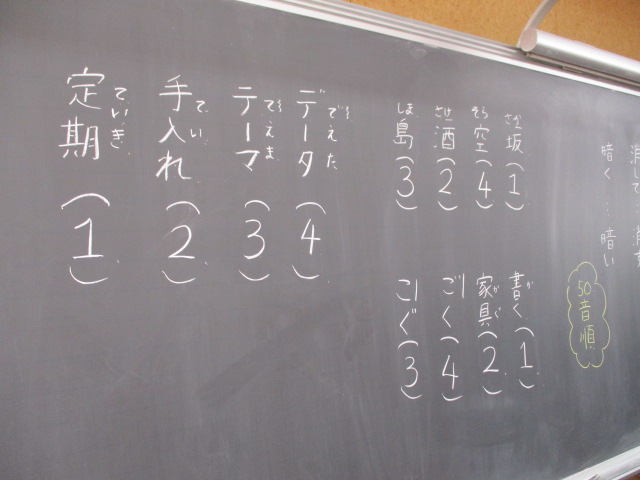 消して
暗く…暗い
50音順
さか
坂(1)
そら
空(4)
さけ
酒(2)
しま
島(3)
か
書く(1)
かぐ
家具(2)
ごく(4)
こぐ(3)
でえた
データ(4)
てえま
テーマ(3)
てい
手入れ(2)
ていき
定期(1)